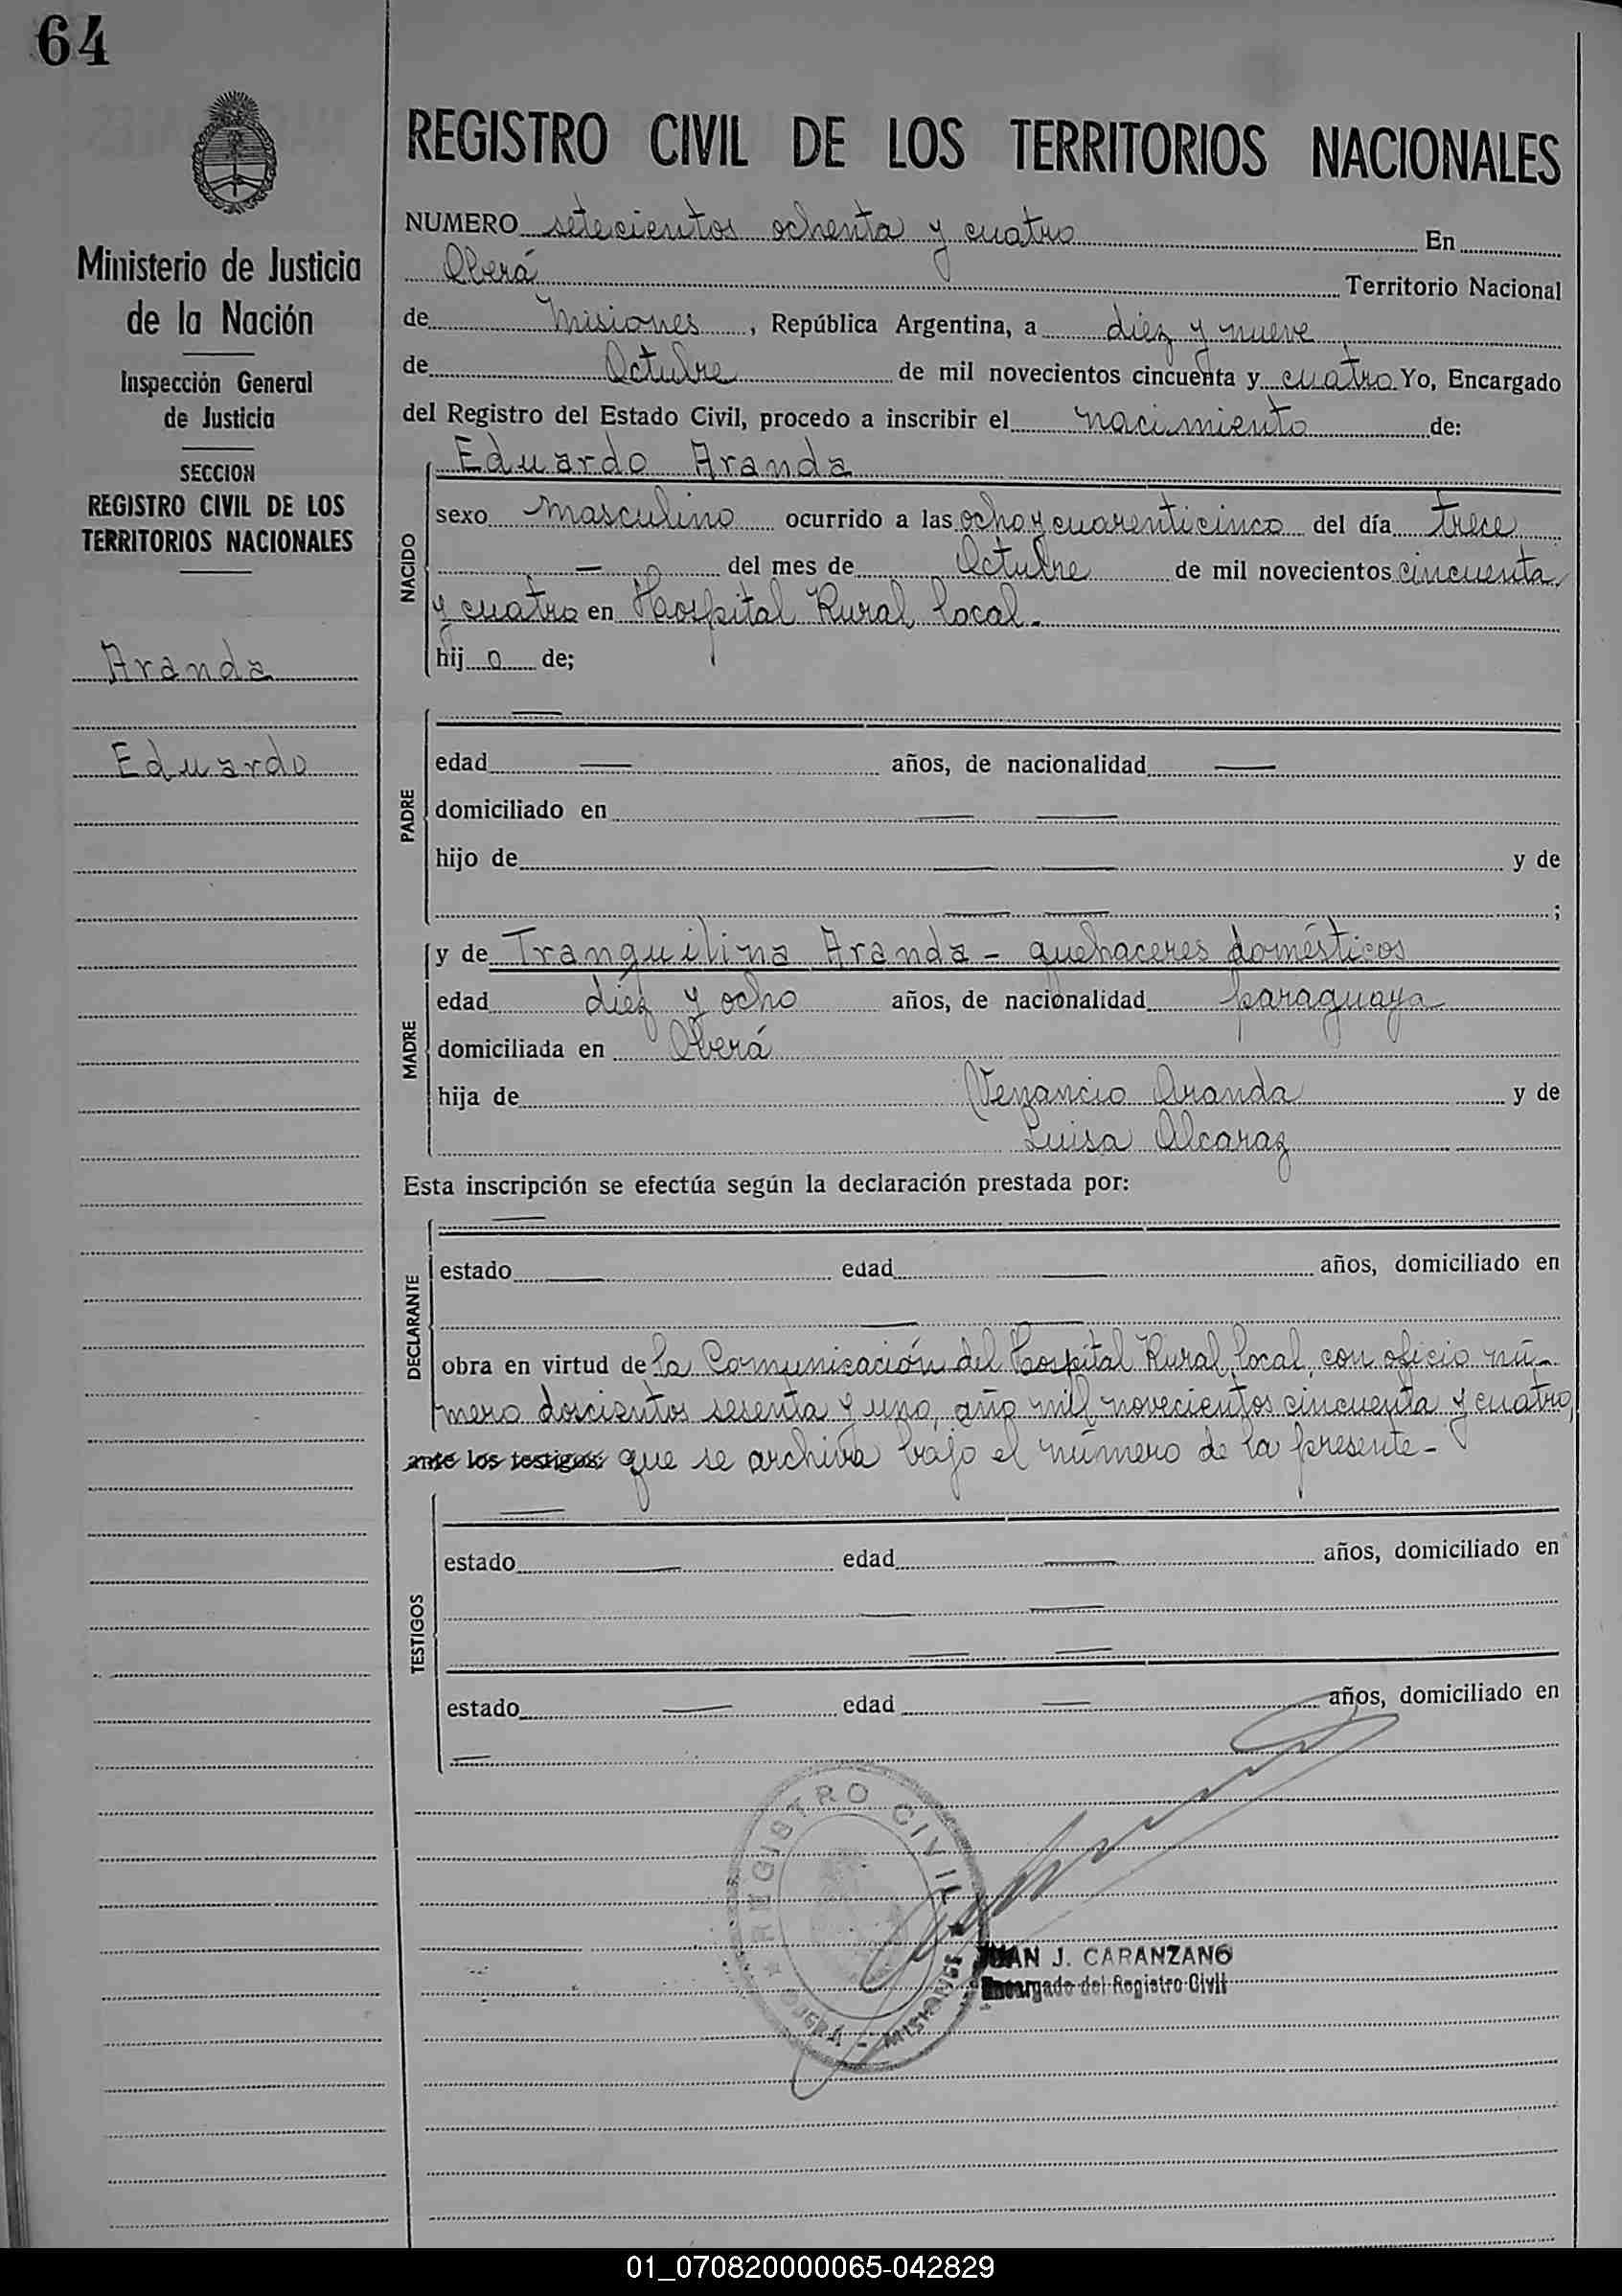 64
Ministerio de Justicia
de la Nación
Inspección General
de Justicia
SECCION
REGISTRO CIVIL DE LOS
TERRITORIOS NACIONALES
Aranda
Eduardo
REGISTRO CIVIL DE LOS TERRITORIOS NACIONALES
NUMERO setecientos ochenta y cuatro En
Oberá Territorio Nacional
de Misiones, República Argentina, a diez y nueve
de Octubre de mil novecientos cincuenta y cuatro Yo, Encargado
del Registro del Estado Civil, procedo a inscribir el nacimiento de:
Eduardo Aranda
NACIDO
sexo masculino ocurrido a las ocho y cuarenticinco del día trece
— del mes de Octubre de mil novecientos cincuenta
y cuatro en Hospital Rural local.
hij o de;
PADRE
—
edad — años, de nacionalidad —
domiciliado en — —
hijo de — — y de
— — ;
MADRE
y de Tranquilina Aranda - quehaceres domésticos
edad diez y ocho años, de nacionalidad paraguaya
domiciliada en Oberá
hija de Venancio Aranda y de
Luisa Alcaraz
Esta inscripción se efectúa según la declaración prestada por:
DECLARANTE
—
estado — edad — años, domiciliado en
—
obra en virtud de la Comunicación del Hospital Rural local, con oficio nú-
mero doscientos sesenta y uno, año mil novecientos cincuenta y cuatro,
ante los testigos: que se archiva bajo el número de la presente-
TESTIGOS
—
estado — edad — años, domiciliado en
— —
— —
estado — edad — años, domiciliado en
—
REGISTRO CIVIL
OBERÁ - MISIONES
JUAN J. CARANZANO
Encargado del Registro Civil
01_070820000065-042829